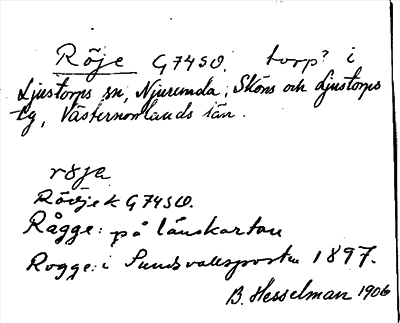 Röje G74SO. torp? i
Ljustorps sn, Njurunda, Sköns och Ljustorps
tg, Västernorrlands län.
röja
Röje k G74SO.
Rågge: på länskartan
Rogge: i Sundsvallsposten 1897.
B. Hesselman 1906